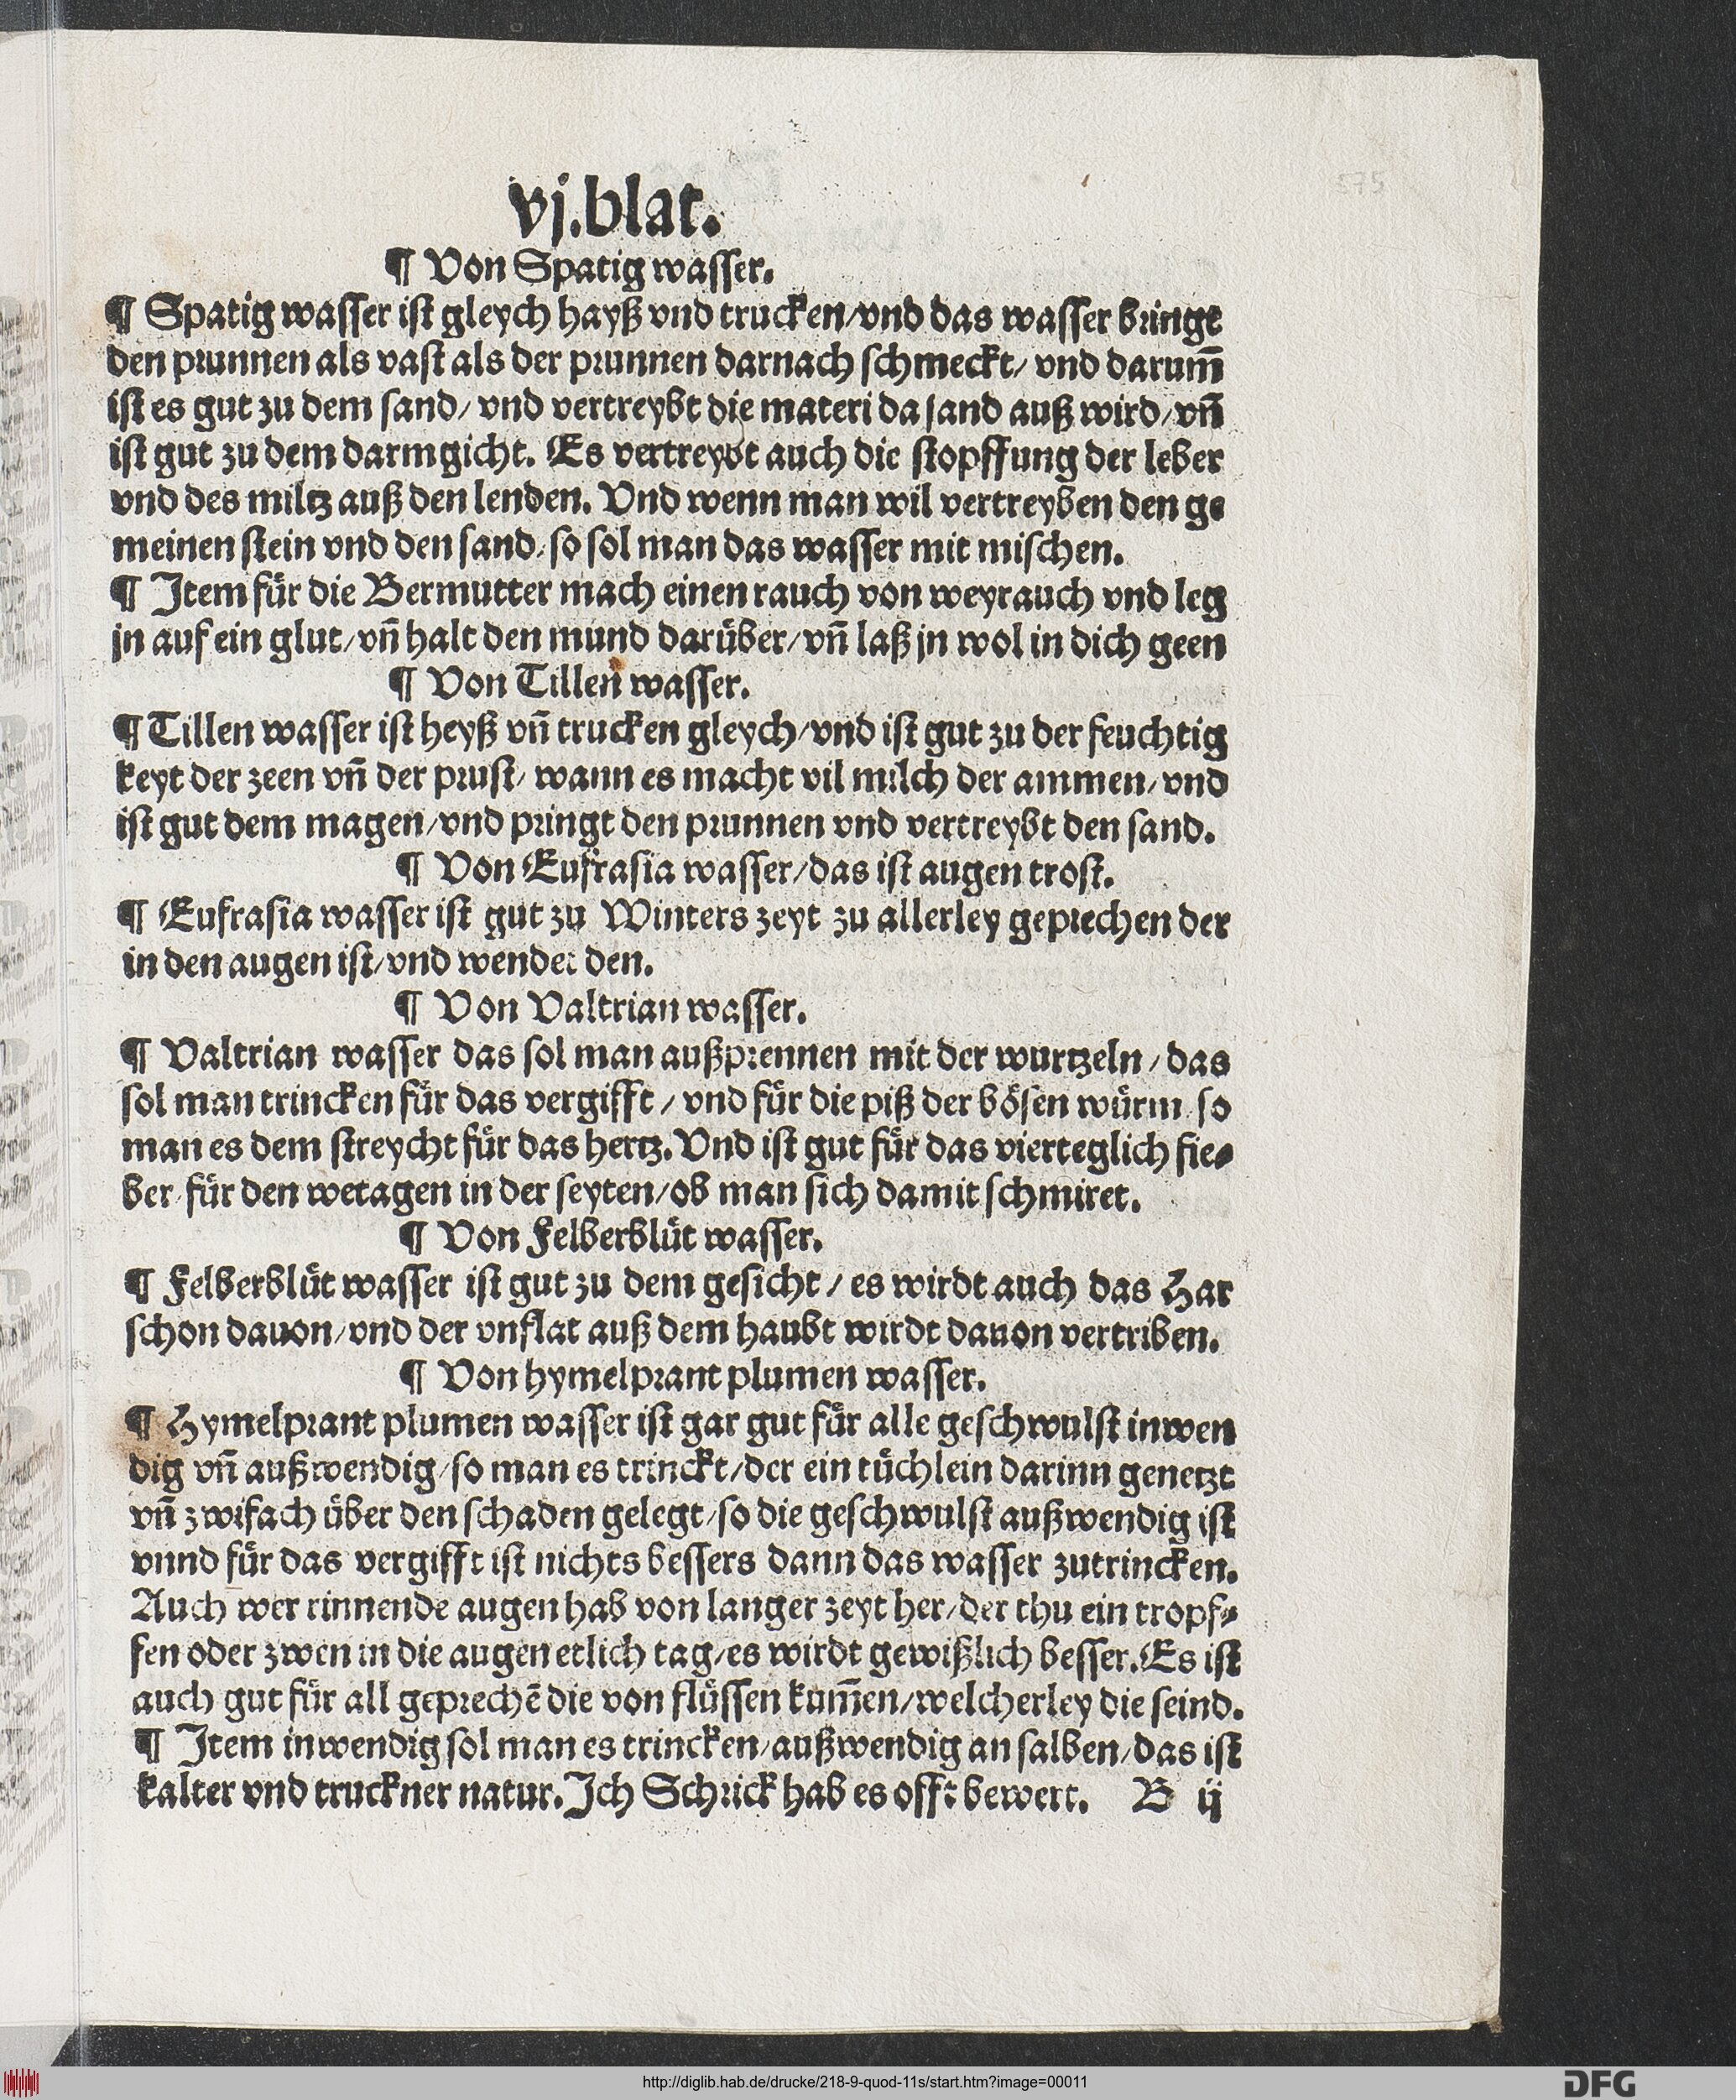 575
vj.blat.
¶ Von Spatig wasser.
¶ Spatig wasser ist gleych hayß vnd trucken/vnd das wasser bringt
den prunnen als vast als der prunnen darnach schmeckt/ vnd darum̄
ist es gut zu dem sand/ vnd vertreybt die materi da sand auß wird/vn̄
ist gut zu dem darmgicht. Es vertreybt auch die stopffung der leber
vnd des miltz auß den lenden. Vnd wenn man wil vertreyben den ge
meinen stein vnd den sand/ so sol man das wasser mit mischen.
¶ Item für die Bermutter mach einen rauch von weyrauch vnd leg
jn auf ein glut/vn̄ halt den mund darüber/vn̄ laß jn wol in dich geen
¶ Von Tillen wasser.
¶ Tillen wasser ist heyß vn̄ trucken gleych/vnd ist gut zu der feuchtig
keyt der zeen vn̄ der prust/ wann es macht vil milch der ammen/vnd
ist gut dem magen/vnd pringt den prunnen vnd vertreybt den sand.
¶ Von Eufrasia wasser/das ist augen trost.
¶ Eufrasia wasser ist gut zu Winters zeyt zu allerley geprechen der
in den augen ist/vnd wendet den.
¶ Von Valtrian wasser.
¶ Valtrian wasser das sol man außprennen mit der wurtzeln / das
sol man trincken für das vergifft / vnd für die piß der bösen würm/so
man es dem streycht für das hertz. Vnd ist gut für das vierteglich fie⸗
ber/für den wetagen in der seyten/ob man sich damit schmiret.
¶ Von Felberblüt wasser.
¶ Felberblüt wasser ist gut zu dem gesicht / es wirdt auch das Har
schon dauon/vnd der vnflat auß dem haubt wirdt dauon vertriben.
¶ Von hymelprant plumen wasser.
¶ Hymelprant plumen wasser ist gar gut für alle geschwulst inwen
dig vn̄ außwendig/so man es trinckt/der ein tüchlein darinn genetzt
vn̄ zwifach über den schaden gelegt/so die geschwulst außwendig ist
vnnd für das vergifft ist nichts bessers dann das wasser zutrincken.
Auch wer rinnende augen hab von langer zeyt her/der thu ein tropf⸗
fen oder zwen in die augen etlich tag/es wirdt gewißlich besser. Es ist
auch gut für all geprechē die von flüssen kum̄en/welcherley die seind.
¶ Item inwendig sol man es trincken/außwendig an salben/das ist
kalter vnd truckner natur. Ich Schrick hab es offt bewert. B ij
http://diglib.hab.de/drucke/218-9-quod-11s/start.htm?image=00011
DFG